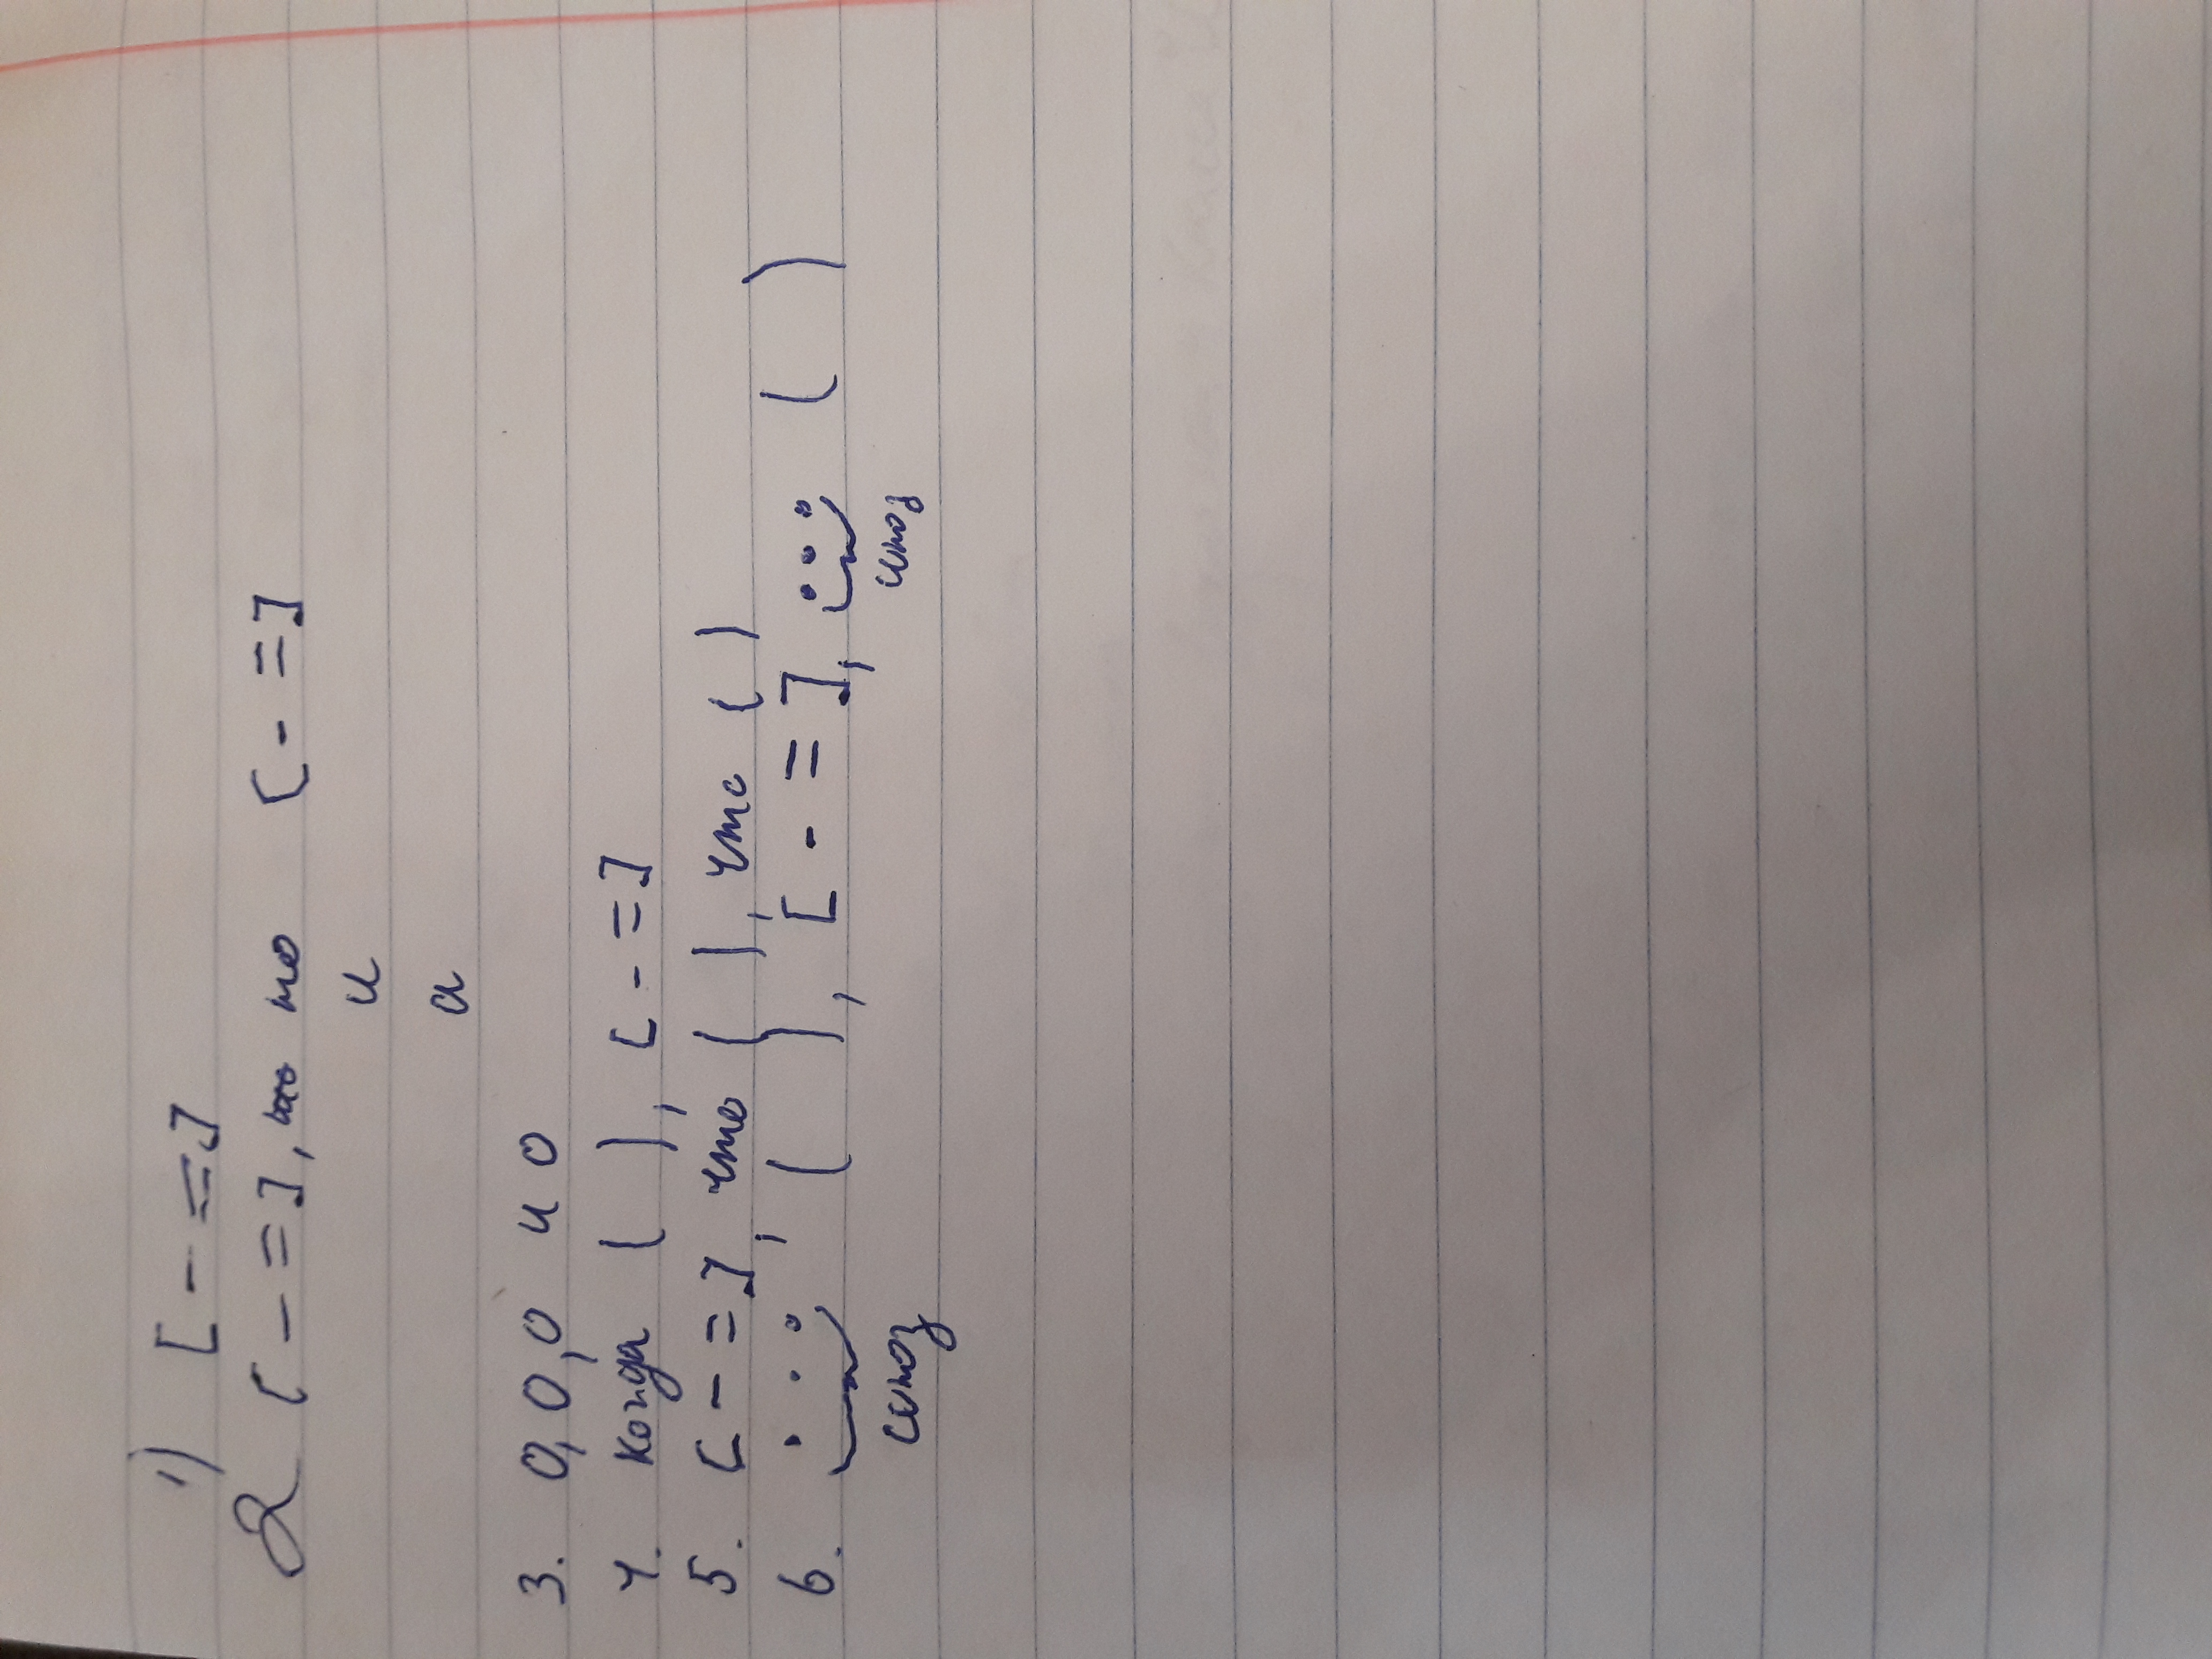 1) [ - = ]
2 [ - = ], то [ - = ]
и
а
3. О, О, О и О
4. когда ( ), [ - = ]
5. [ - = ], что ( ), что ( )
6. ... , ( ), [ - = ], ... ( )
союз союз